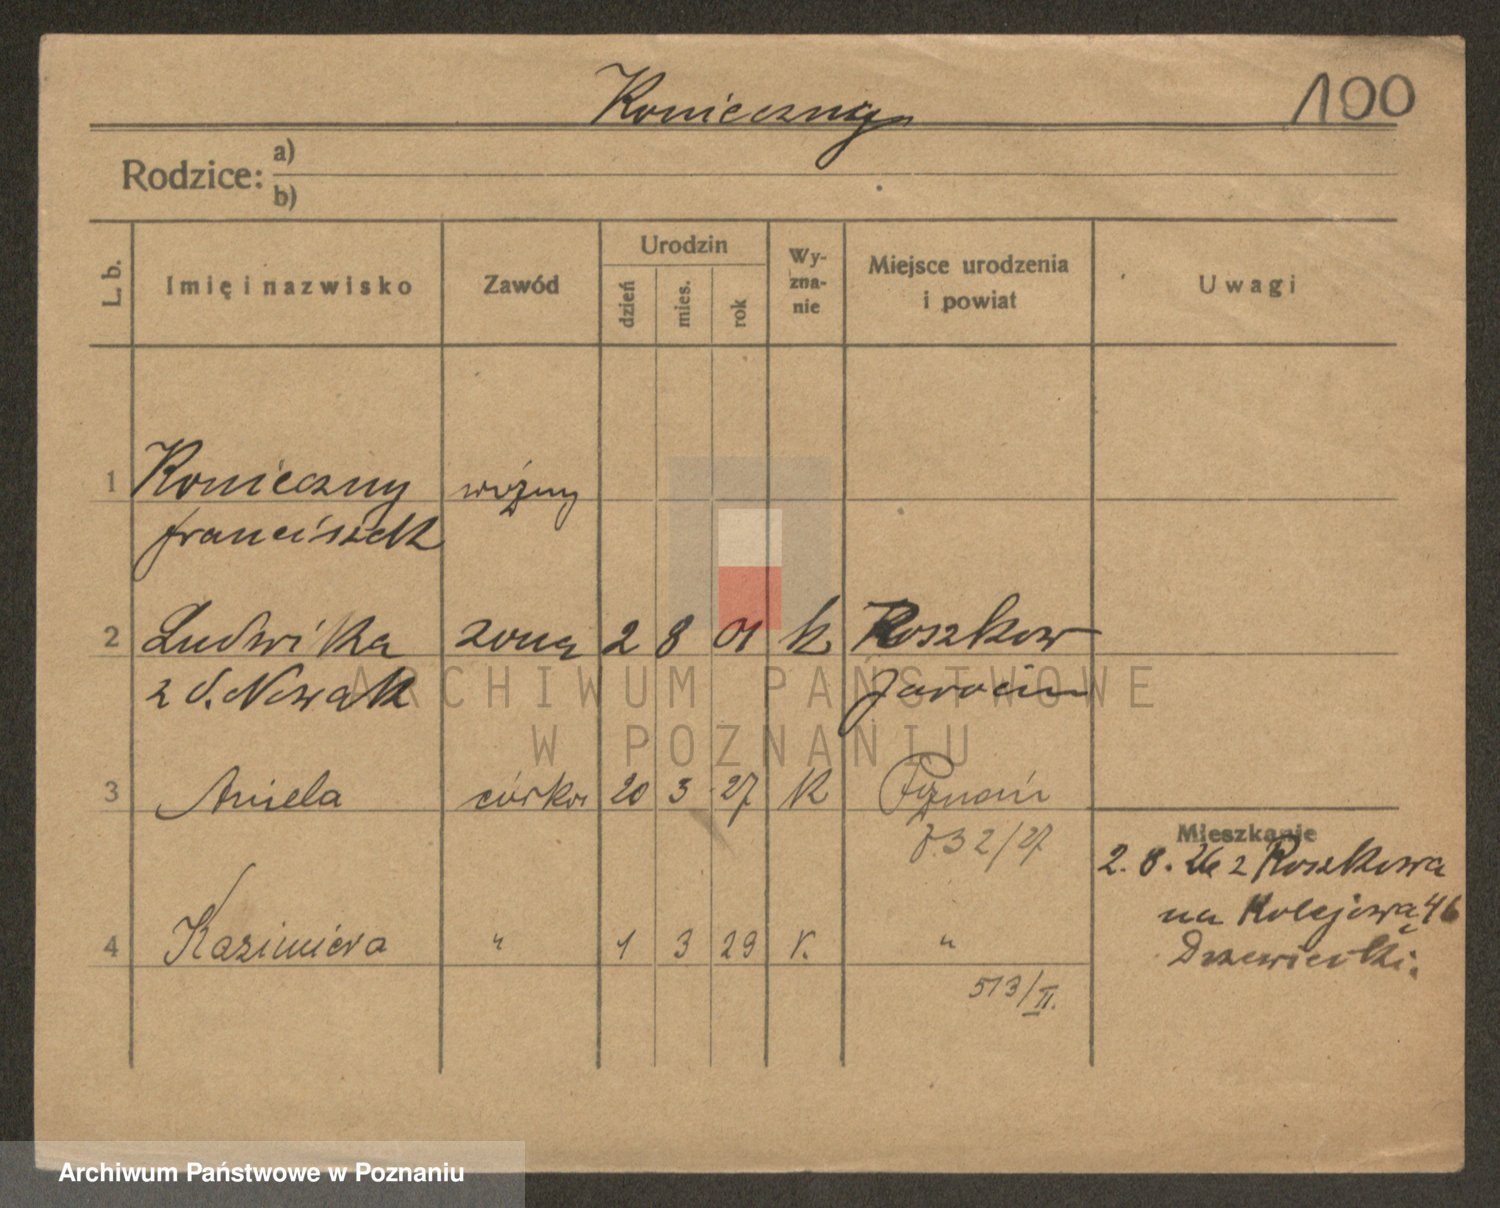 Konieczny
100
Rodzice:
a)
b)
L. b.
Imię i nazwisko
Zawód
Urodzin
dzień
mies.
rok
Wy-
zna-
nie
Miejsce urodzenia
i powiat
Uwagi
1 Konieczny woźny
Franciszek
2 Ludwika żona 2 8 01 k Roszkow
z d. Nowak Jarocin
ARCHIWUM PAŃSTWOWE
W POZNANIU
3 Aniela córka 20 3 27 k Poznań
732/27
Mieszkanie
2. 8. 26 z Roszkowa
na Kolejową 46
4 Kazimiera " 1 3 29 k. "
513/II.
Archiwum Państwowe w Poznaniu